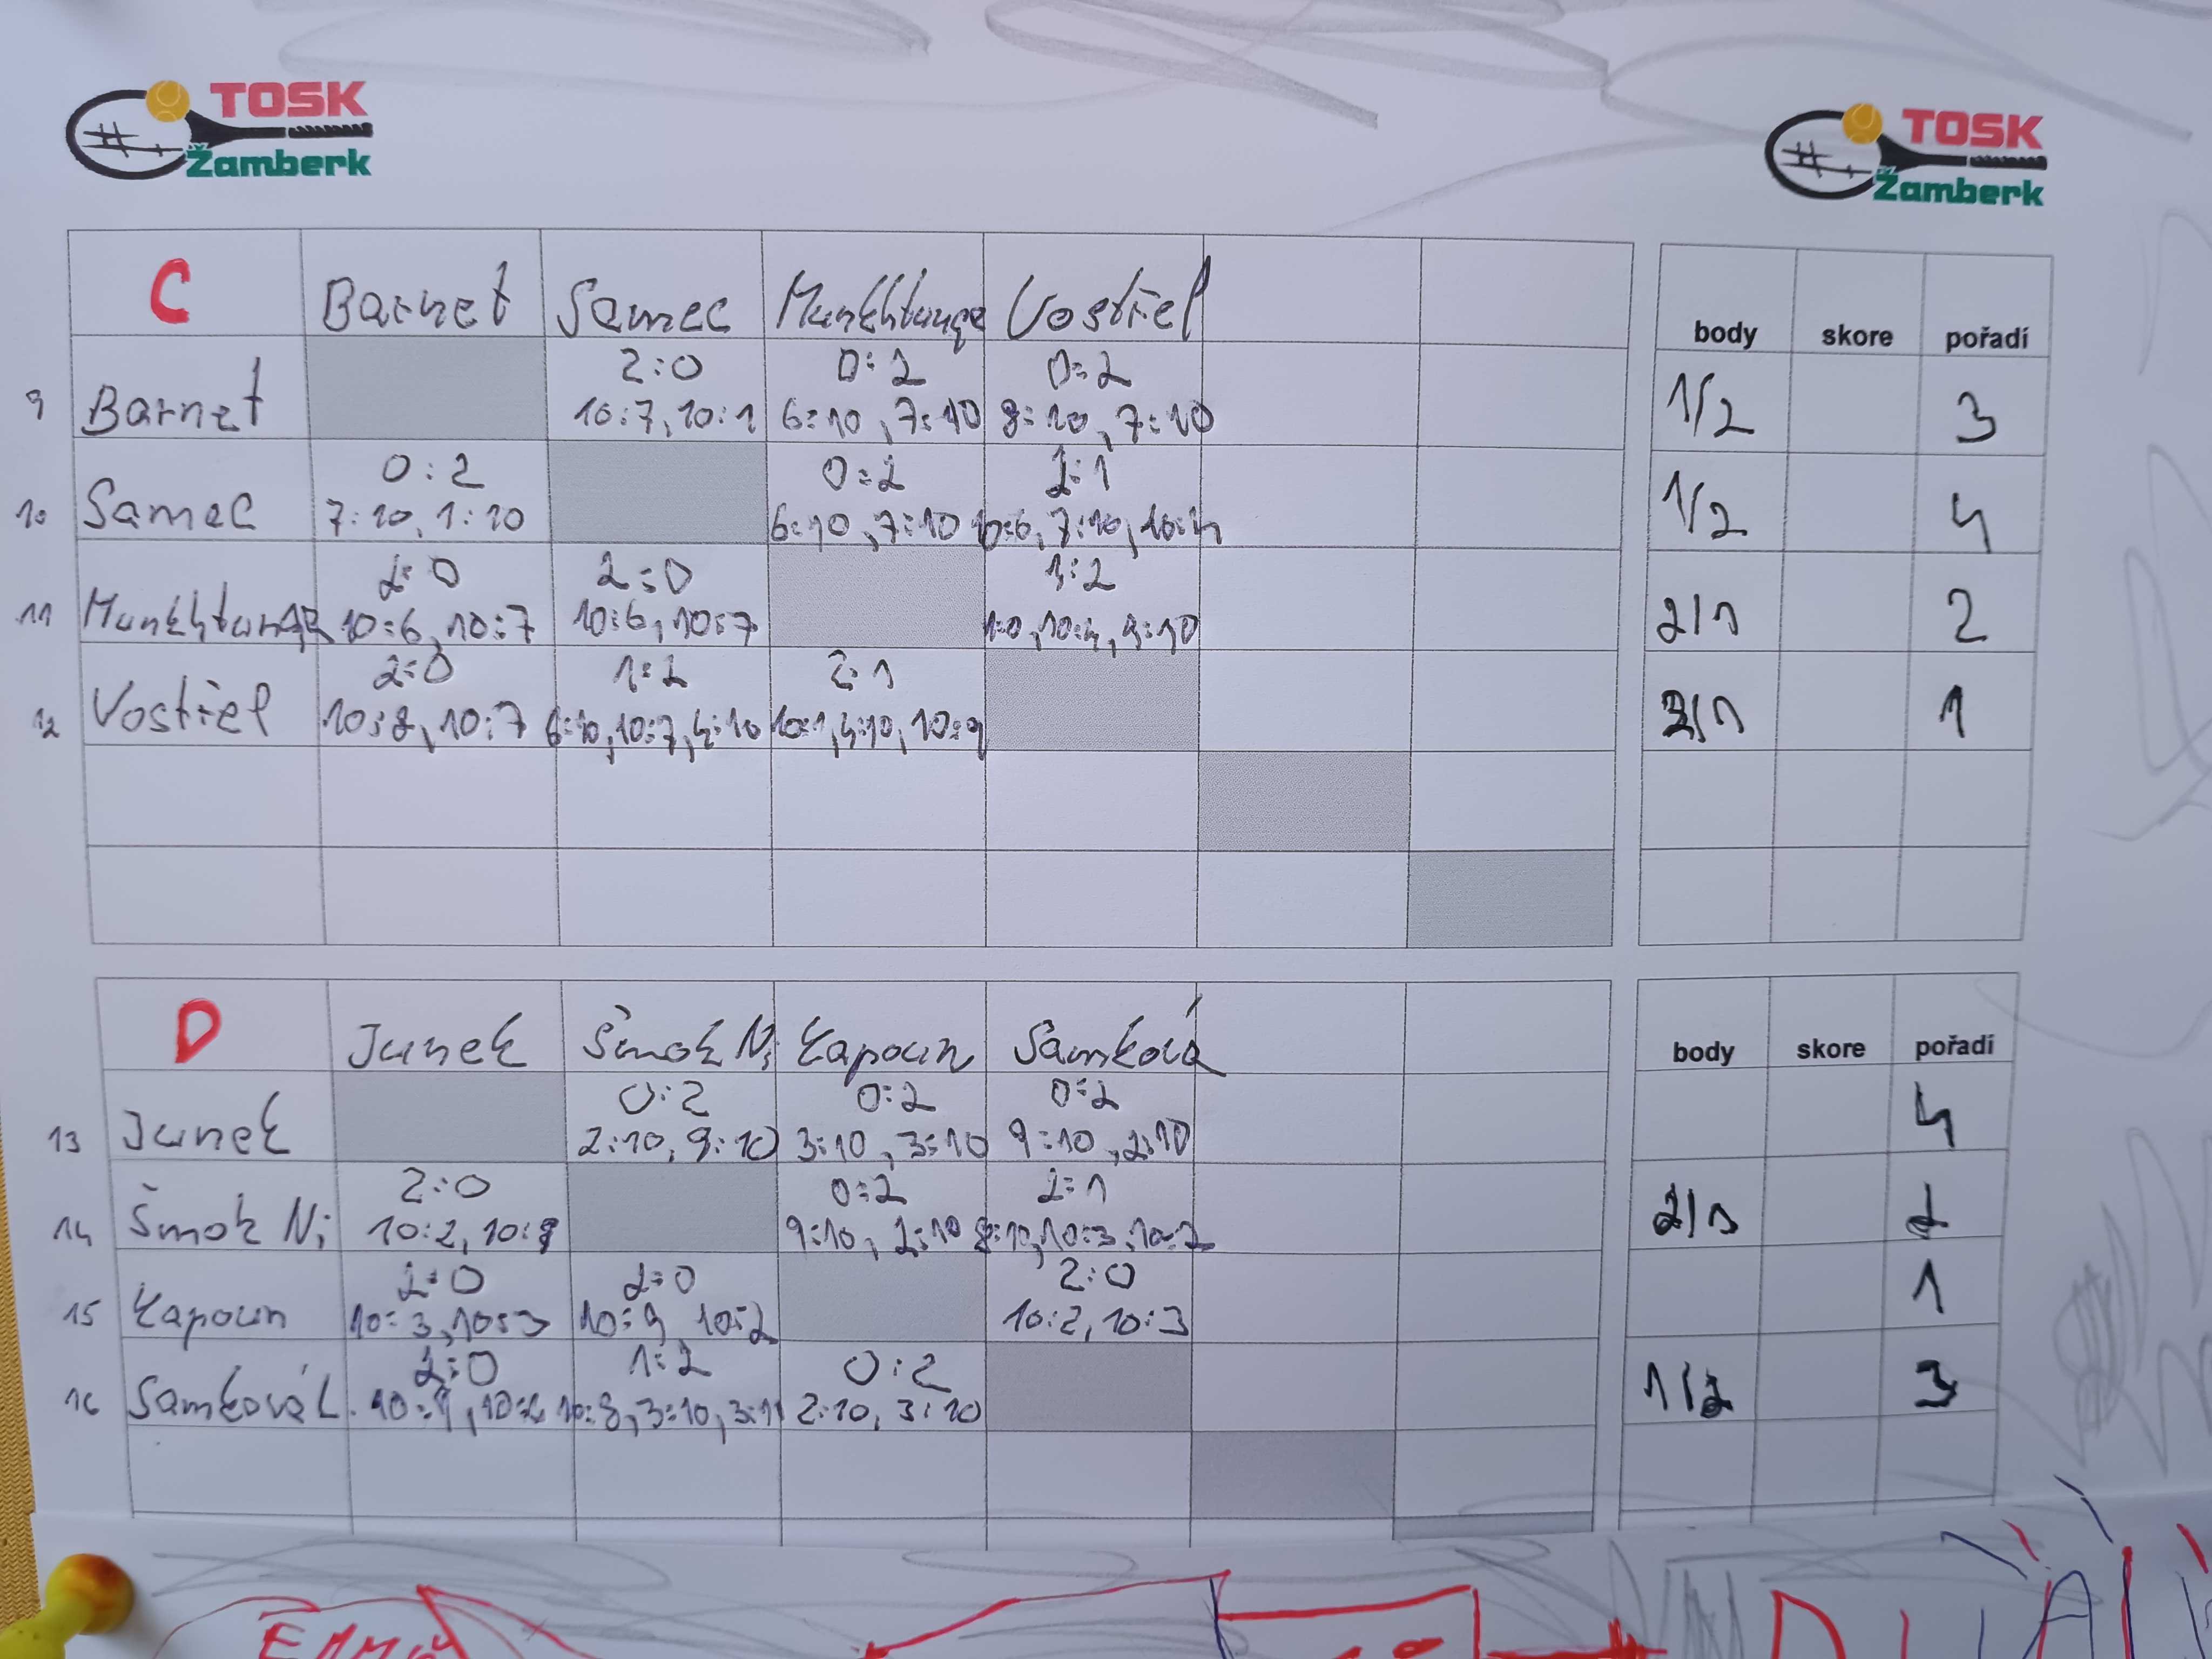 TOSK
Žamberk
TOSK
Žamberk
C Barnet Samec Vostřel body skore pořadí
9 Barnet 2:0 0:2 0:2 1/2 3
10:7, 10:1 6:10, 7:10 8:10, 7:10
10 Samec 0:2 0:2 2:1 1/2 4
7:10, 1:10 6:10, 7:10 10:6, 7:10, 10:4
11 2:0 2:0 1:2 2/1 2
10:6, 10:7 10:6, 10:7 10:4, 9:10
12 Vostřel 2:0 1:2 2:1 2/1 1
10:8, 10:7 6:10, 10:7, 4:10 10:1, 4:10, 10:9
D Junek Šmok Ni Kapoun Samková body skore pořadí
13 Junek 0:2 0:2 0:2 4
2:10, 9:10 3:10, 3:10 9:10, 2:10
14 Šmok Ni 2:0 0:2 2:1 2/1 2
10:2, 10:9 9:10, 2:10 8:10, 10:3, 10:
15 Kapoun 2:0 2:0 2:0 1
10:3, 10:3 10:9, 10:2 10:2, 10:3
16 Samková L. 2:0 1:2 0:2 1/2 3
10:9, 10:2 10:8, 3:10, 2:10, 3:10